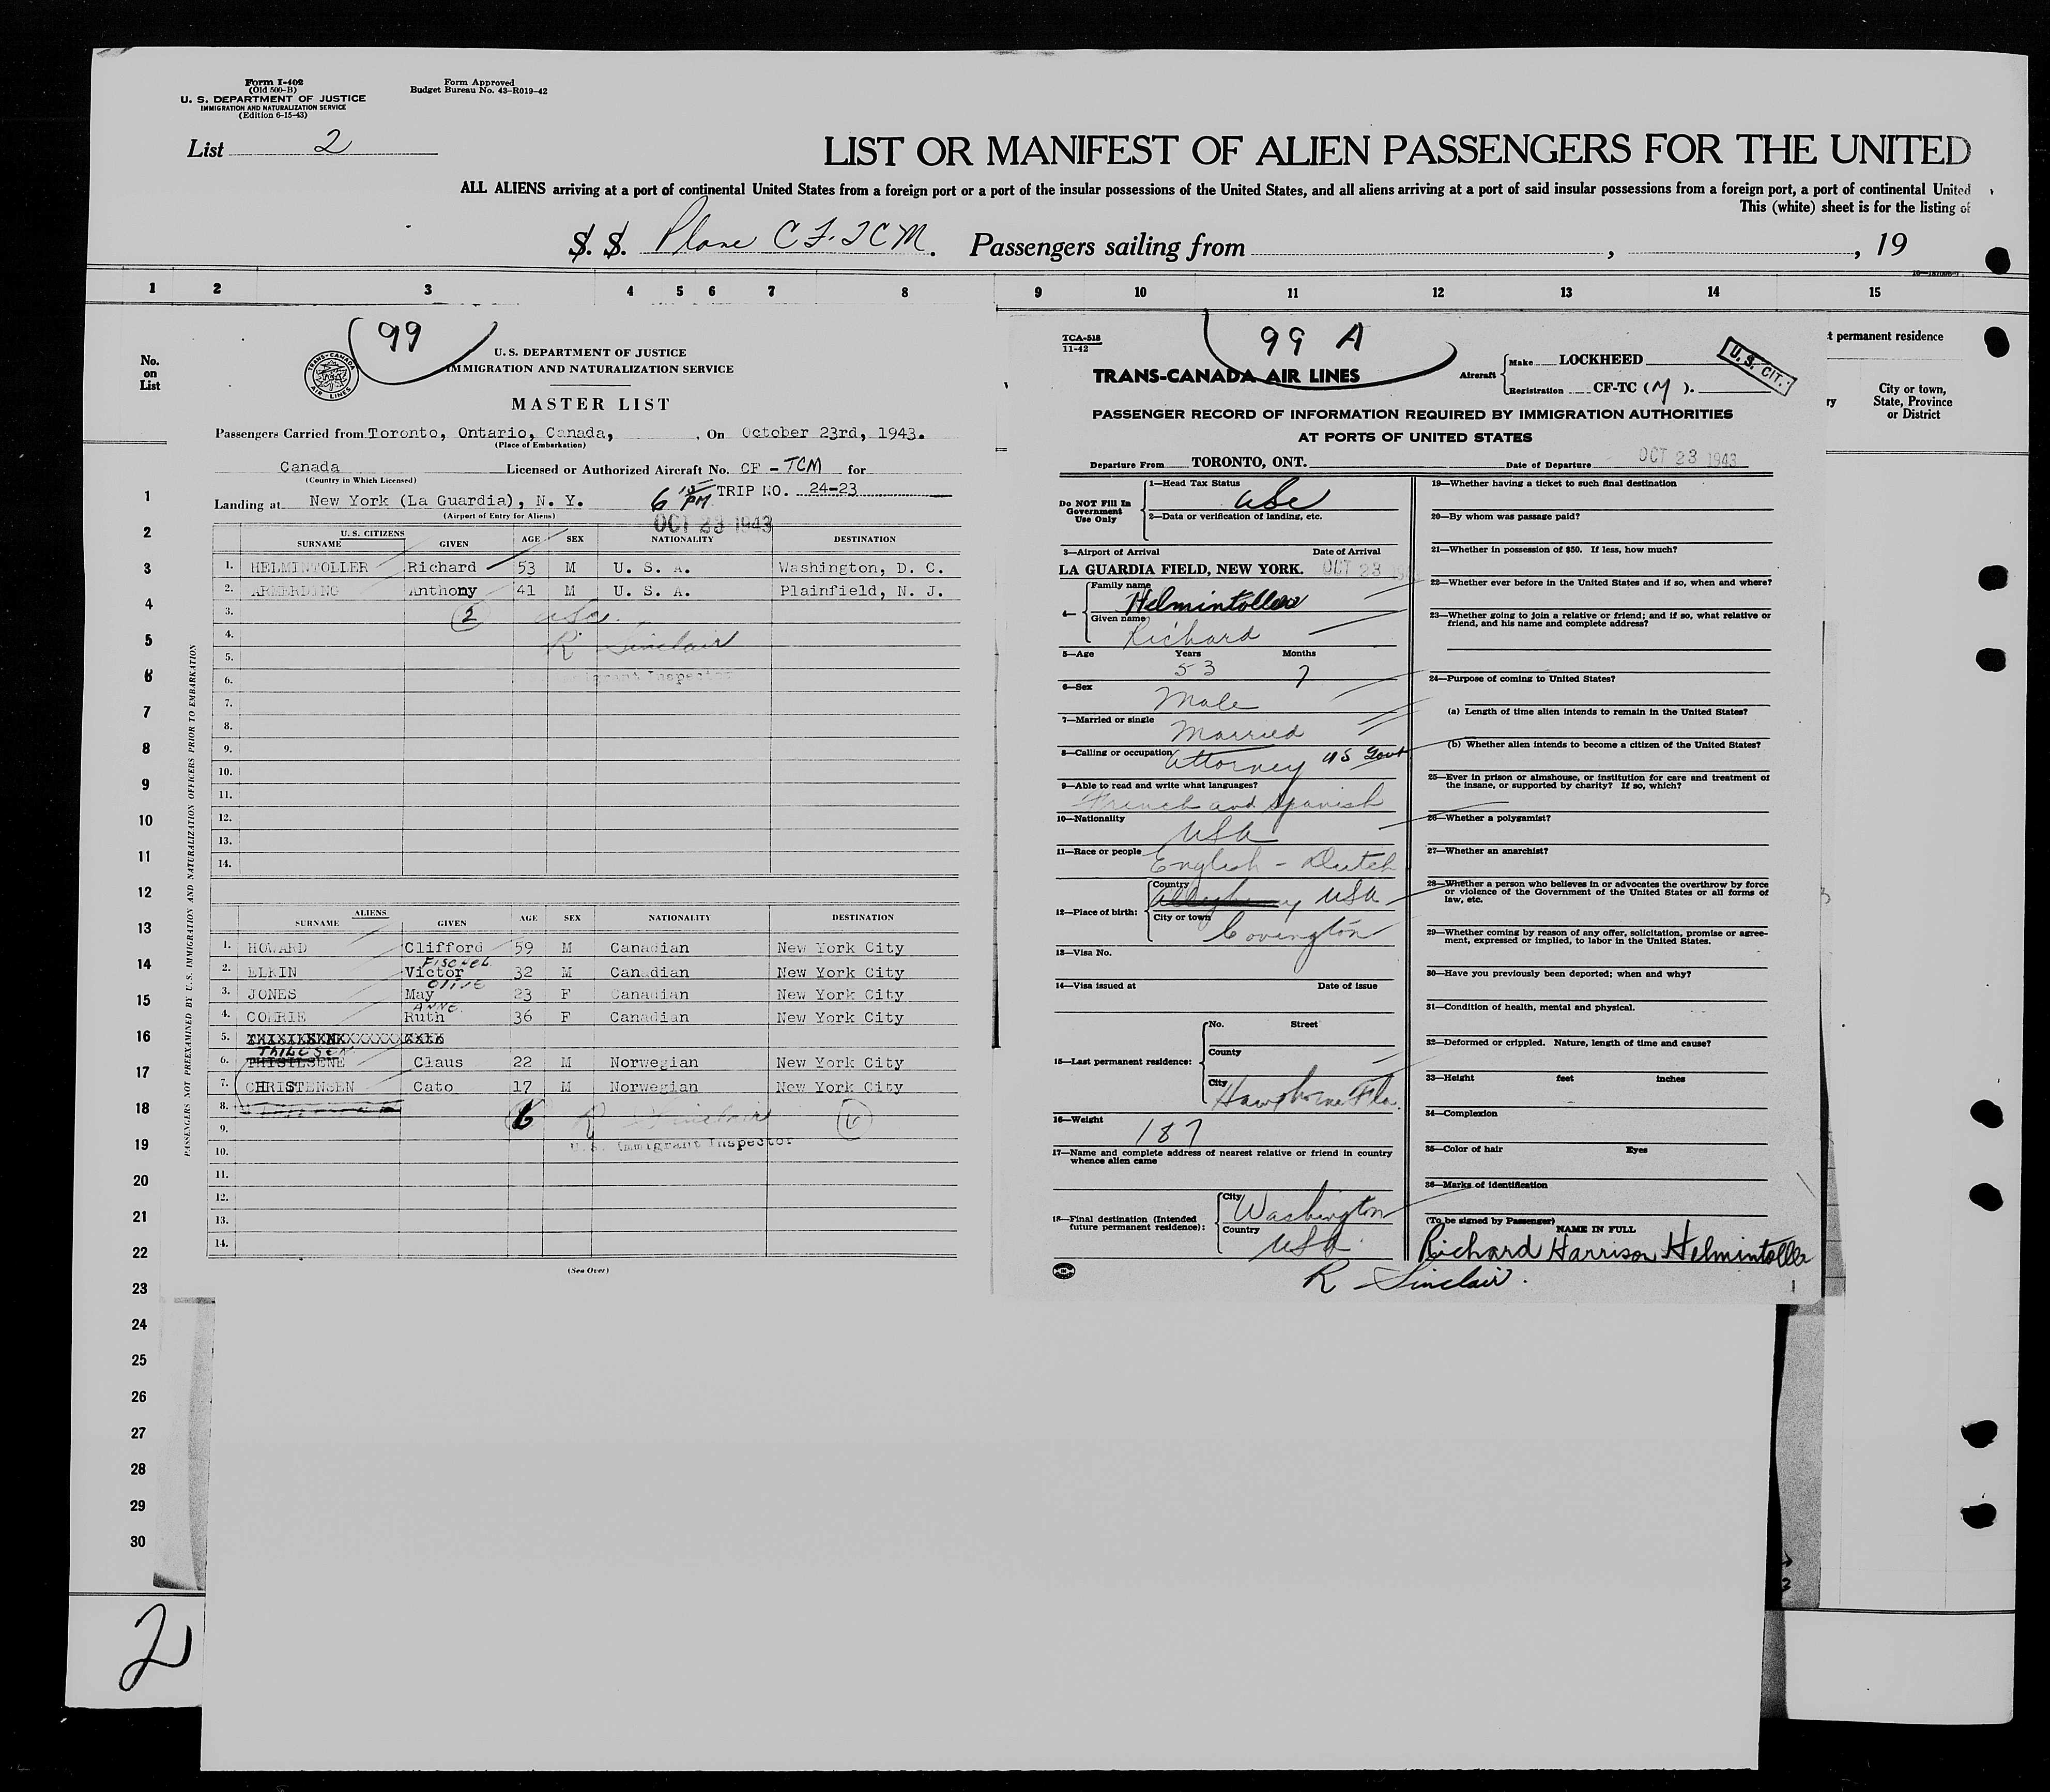 Form I-402
(Old 500-B)
U. S. DEPARTMENT OF JUSTICE
IMMIGRATION AND NATURALIZATION SERVICE
(Edition 6-15-43)
Form Approved
Budget Bureau No. 43-R019-42
List 2
LIST OR MANIFEST OF ALIEN PASSENGERS FOR THE UNITED
ALL ALIENS arriving at a port of continental United States from a foreign port or a port of the insular possessions of the United States, and all aliens arriving at a port of said insular possessions from a foreign port, a port of continental United
This (white) sheet is for the listing of
S. S. Plane CF-TCM. Passengers sailing from , , 19
1 2 3 4 5 6 7 8 9 10 11 12 13 14 15
No.
on
List
t permanent residence
ry
City or town,
State, Province
or District
1
2
3
4
5
6
7
8
9
10
11
12
13
14
15
16
17
18
19
20
21
22
23
24
25
26
27
28
29
30
2
PASSENGERS NOT PREEXAMINED BY U.S. IMMIGRATION AND NATURALIZATION OFFICERS PRIOR TO EMBARKATION
99
TRANS-CANADA AIR LINES
U. S. DEPARTMENT OF JUSTICE
IMMIGRATION AND NATURALIZATION SERVICE
MASTER LIST
Passengers Carried from Toronto, Ontario, Canada, , On October 23rd, 1943.
(Place of Embarkation)
Canada Licensed or Authorized Aircraft No. CF - TCM for
(Country in Which Licensed)
6 15 PM TRIP NO. 24-23
Landing at New York (La Guardia), N. Y.
(Airport of Entry for Aliens)
OCT 23 1943
U. S. CITIZENS
SURNAME GIVEN AGE SEX NATIONALITY DESTINATION
1. HELMINTOLLER Richard 53 M U. S. A. Washington, D. C.
2. ARMERDING Anthony 41 M U. S. A. Plainfield, N. J.
3. 2 usc.
4. R Sinclair
5.
6. Immigrant Inspector
7.
8.
9.
10.
11.
12.
13.
14.
ALIENS
SURNAME GIVEN AGE SEX NATIONALITY DESTINATION
1. HOWARD Clifford 59 M Canadian New York City
FISCHEL
2. ELKIN Victor 32 M Canadian New York City
OLIVE
3. JONES May 23 F Canadian New York City
ANNE
4. CORRIE Ruth 36 F Canadian New York City
5.
6. Claus 22 M Norwegian New York City
7. CHRISTENSEN Cato 17 M Norwegian New York City
8.
6 R Sinclair 6
9.
U.S. Immigrant Inspector
10.
11.
12.
13.
14.
(See Over)
TCA-518
11-42
99 A
TRANS-CANADA AIR LINES
Aircraft Make LOCKHEED
Registration CF-TC (M).
U. S. CIT.
PASSENGER RECORD OF INFORMATION REQUIRED BY IMMIGRATION AUTHORITIES
AT PORTS OF UNITED STATES
Departure From TORONTO, ONT. Date of Departure OCT 23 1943
Do NOT Fill In
Government
Use Only
1—Head Tax Status
usc
2—Data or verification of landing, etc.
3—Airport of Arrival Date of Arrival
LA GUARDIA FIELD, NEW YORK. OCT 23
4—
Family name
Helmintoller
Given name
Richard
5—Age Years Months
53 7
6—Sex
Male
7—Married or single
Married
8—Calling or occupation
Attorney US Govt
9—Able to read and write what languages?
French and Spanish
10—Nationality
USA
11—Race or people
English - Dutch
12—Place of birth:
Country
Alleghany USA
City or town
Covington
13—Visa No.
14—Visa issued at Date of issue
15—Last permanent residence:
No. Street
County
City
Hawthorne Fla.
16—Weight
187
17—Name and complete address of nearest relative or friend in country
whence alien came
18—Final destination (Intended
future permanent residence):
City
Washington
Country
USA
R Sinclair.
19—Whether having a ticket to such final destination
20—By whom was passage paid?
21—Whether in possession of $50. If less, how much?
22—Whether ever before in the United States and if so, when and where?
23—Whether going to join a relative or friend; and if so, what relative or
friend, and his name and complete address?
24—Purpose of coming to United States?
(a) Length of time alien intends to remain in the United States?
(b) Whether alien intends to become a citizen of the United States?
25—Ever in prison or almshouse, or institution for care and treatment of
the insane, or supported by charity? If so, which?
26—Whether a polygamist?
27—Whether an anarchist?
28—Whether a person who believes in or advocates the overthrow by force
or violence of the Government of the United States or all forms of
law, etc.
29—Whether coming by reason of any offer, solicitation, promise or agree-
ment, expressed or implied, to labor in the United States.
30—Have you previously been deported; when and why?
31—Condition of health, mental and physical.
32—Deformed or crippled. Nature, length of time and cause?
33—Height feet inches
34—Complexion
35—Color of hair Eyes
36—Marks of identification
(To be signed by Passenger)
NAME IN FULL
Richard Harrison Helmintoller